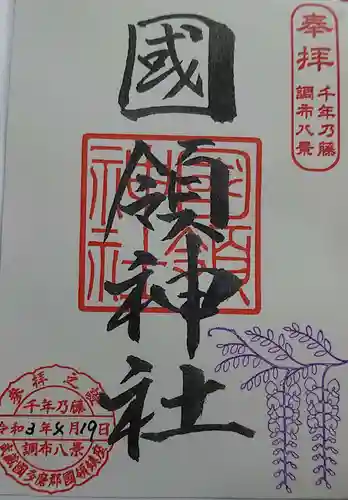 奉拝
千年乃藤
調布八景
國領神社
国領
神社
参拝之證
千年乃藤
令和3年8月19日
調布八景
武蔵國多摩郡國領鎮座